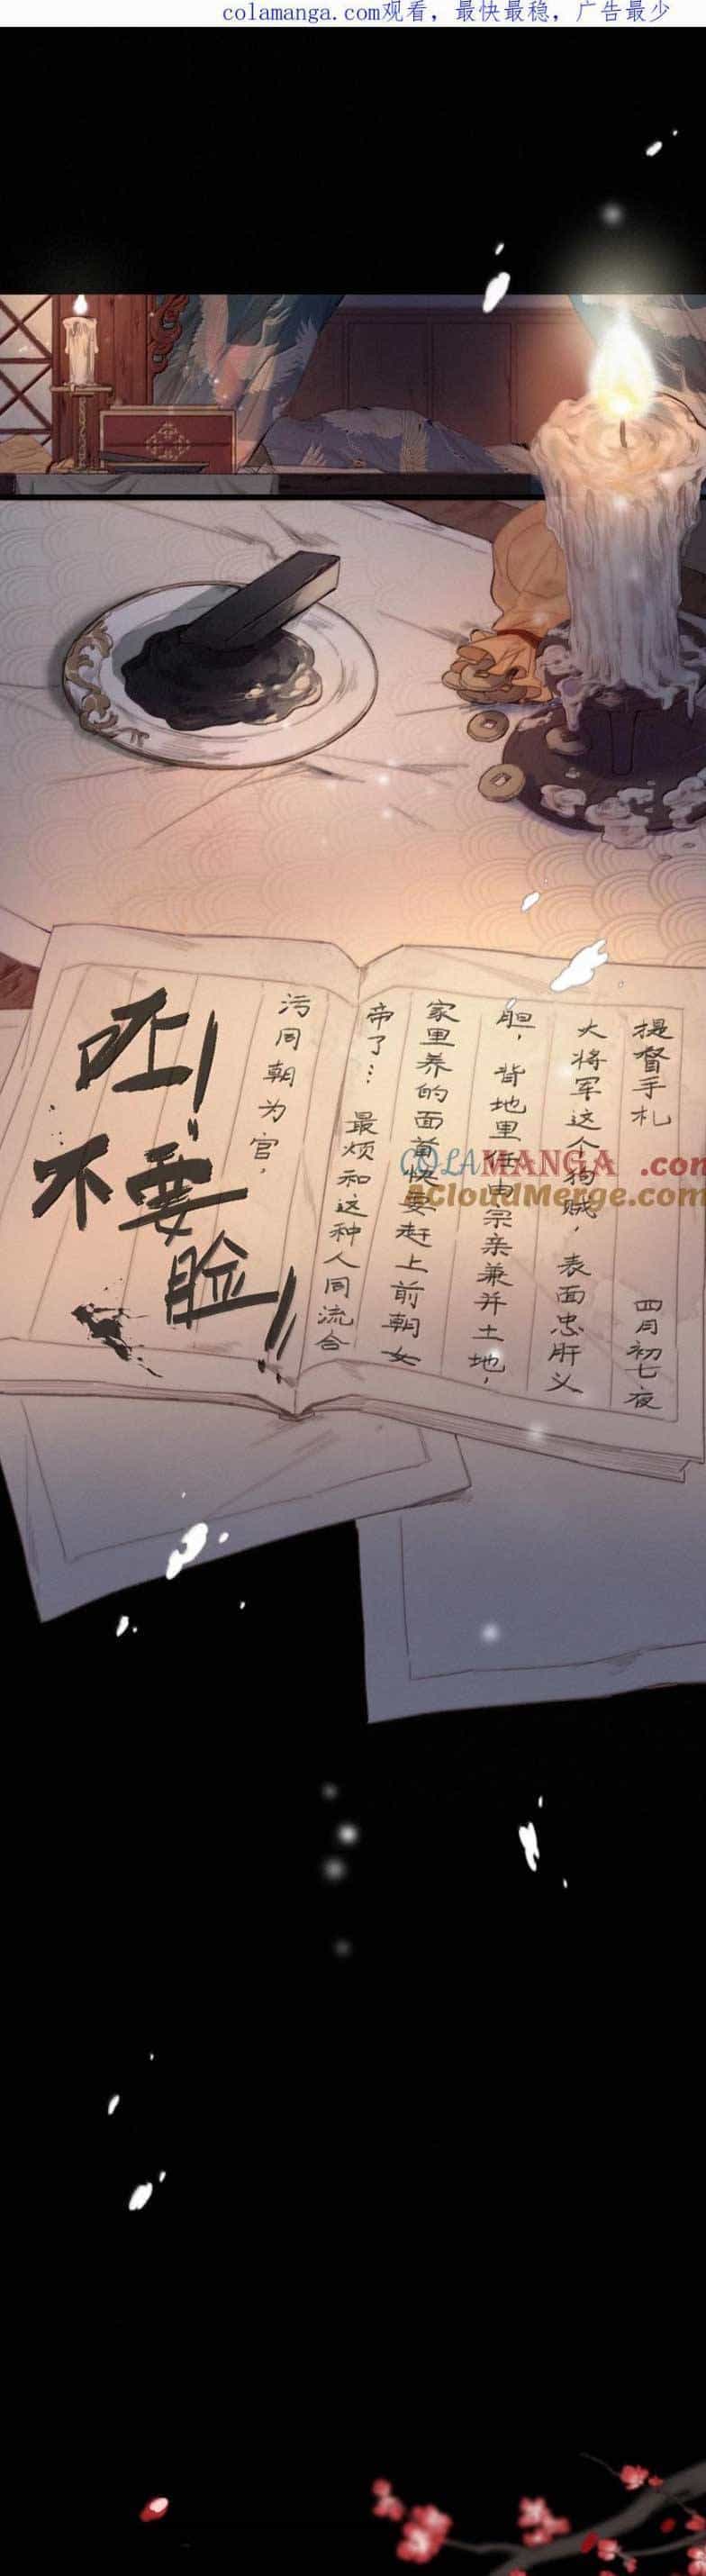 colamanga.com观看，最快最稳，广告最少
提督手札 四月初七夜
大将军这个狗贼，表面忠肝义
胆，背地里任由宗亲兼并土地，
家里养的面首快要赶上前朝女
帝了… 最烦和这种人同流合
污同朝为官，
呸！
不要
脸！！
COLAMANGA.com
ACloudMerge.com
ACloudMerge.com